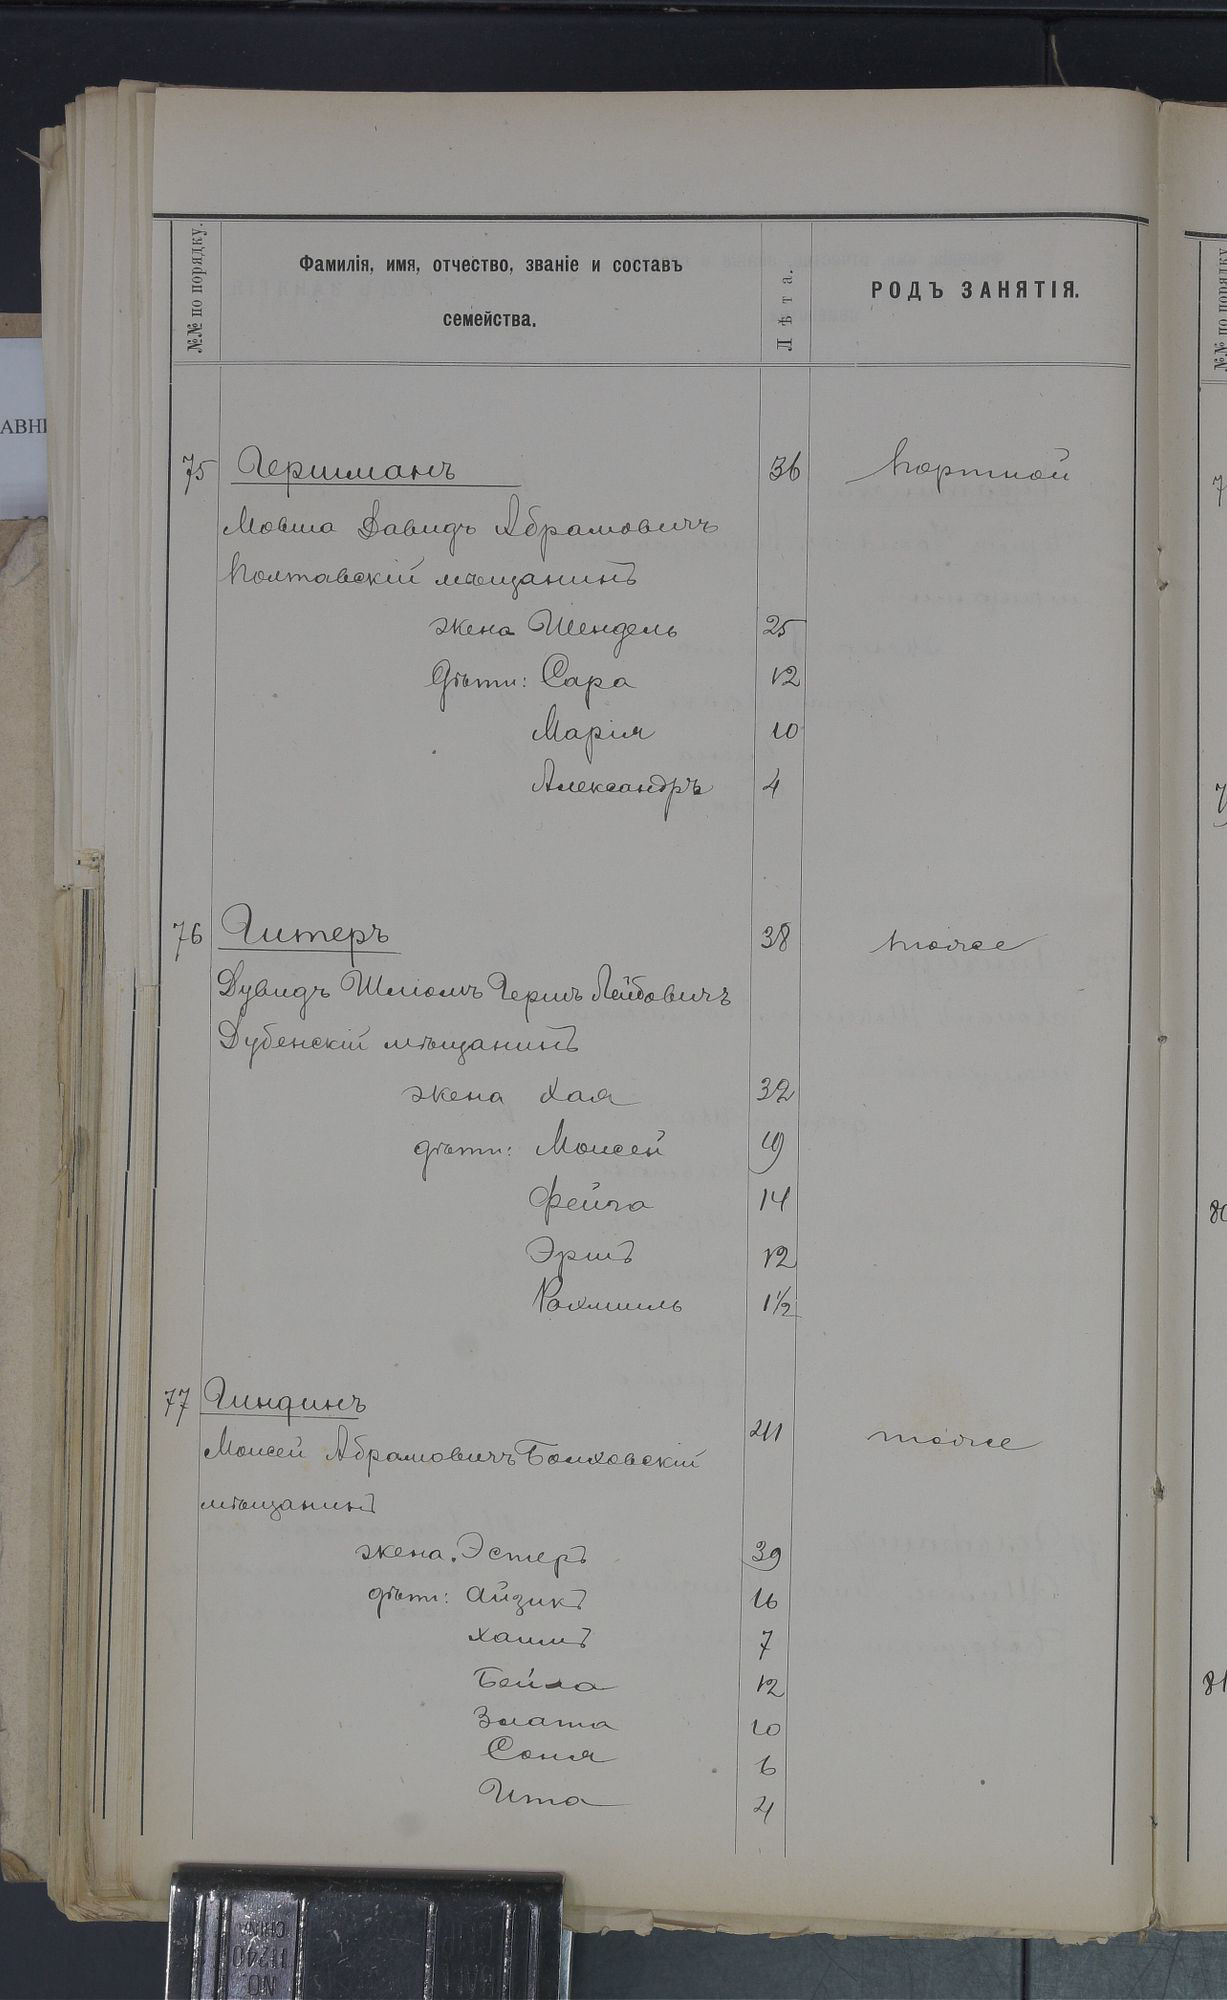 №№ по порядку.
Фамилія, имя, отчество, званіе и составъ
семейства.
Лѣта.
РОДЪ ЗАНЯТІЯ.
75 Гершманъ 36 Портной
Мовша Давидъ Абрамовичъ
Полтавскій мѣщанинъ
жена Шендель 25
Дѣти: Сара 12
Марія 10
Александръ 4
76 Гитеръ 38 тоже
Дувидъ Шліомъ Гершъ Лейбовичъ
Дубенскій мѣщанинъ
жена Хая 32
дѣти: Моисей 19
Фейга 14
Эршъ 12
Рахмиль 1½
77 Гиндинъ 41 тоже
Моисей Абрамовичъ Болховскій
мѣщанинъ
жена Эстеръ 39
дѣти: Айзикъ 16
Хаимъ 7
Бейла 12
Злата 10
Соня 6
Ита 4
АВНИ
№№ по порядку
80
81
CHINA
11240
NO.